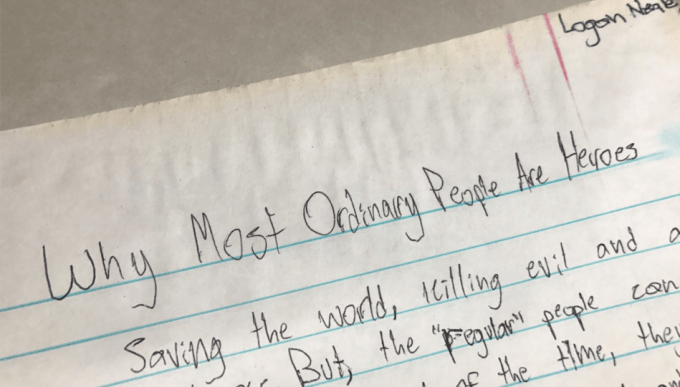 Logan
Why Most Ordinary People Are Heroes
Saving the world, killing evil and
But, the "regular" people can
of the time, they